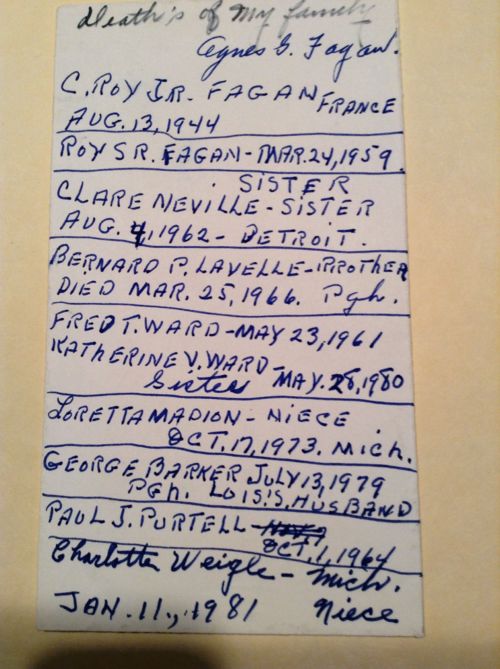 Death's of My family
Agnes G. Fagan.
C. ROY JR. FAGAN FRANCE
AUG. 13, 1944
ROY SR. FAGAN - MAR. 24, 1959.
SISTER
CLARE NEVILLE - SISTER
AUG. 4, 1962 - DETROIT.
BERNARD P. LAVELLE - BROTHER
DIED MAR. 25, 1966. Pgh.
FRED T. WARD - MAY 23, 1961
KATHERINE V. WARD -
Sister - MAY. 28, 1980
LORETTA MADION - NIECE
OCT. 17, 1973. Mich.
GEORGE BARKER JULY 13, 1979
PGh. LOIS'S HUSBAND
PAUL J. PURTELL -
OCT. 1, 1964
Charlotte Weigle - Mich.
JAN. 11, 1981 Niece